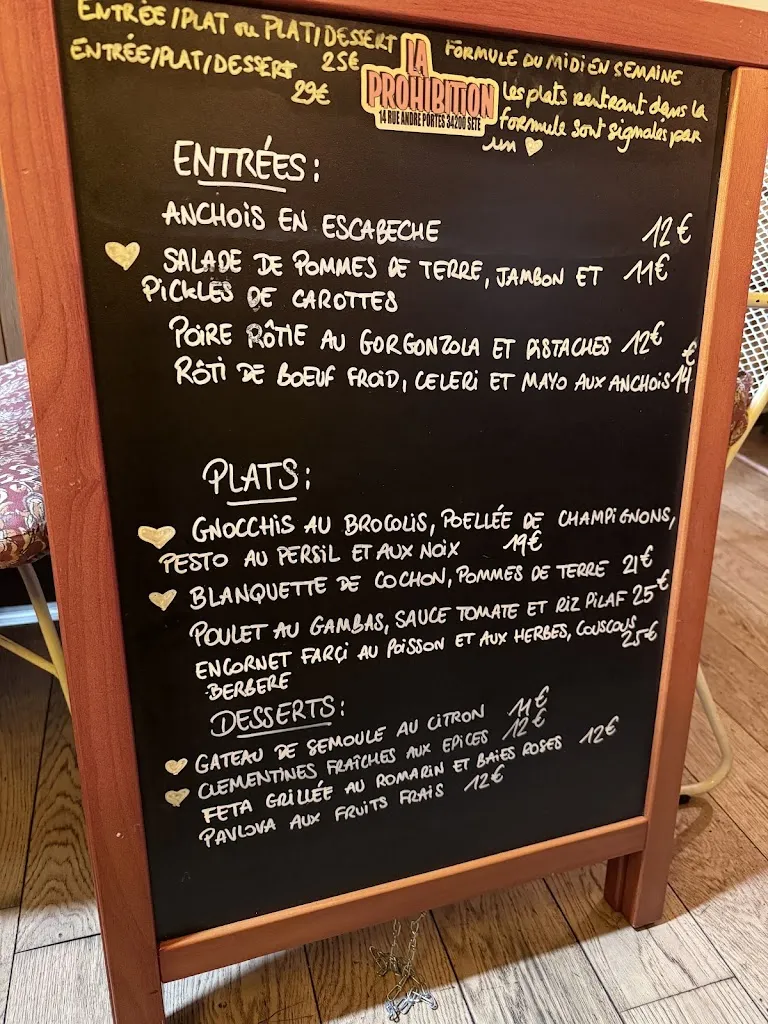 ENTRÉE/PLAT ou PLAT/DESSERT
25€
ENTRÉE/PLAT/DESSERT
29€
LA
PROHIBITION
14 RUE ANDRE PORTES 34200 SETE
FORMULE DU MIDI EN SEMAINE
Les plats rentrant dans la
formule sont signalés par
un ♥
ENTRÉES:
ANCHOIS EN ESCABECHE 12€
♥ SALADE DE POMMES DE TERRE, JAMBON ET 11€
PICKLES DE CAROTTES
POIRE RÔTIE AU GORGONZOLA ET PISTACHES 12€
RÔTI DE BOEUF FROID, CELERI ET MAYO AUX ANCHOIS 14€
PLATS:
♥ GNOCCHIS AU BROCOLIS, POELLÉE DE CHAMPIGNONS,
PESTO AU PERSIL ET AUX NOIX 19€
♥ BLANQUETTE DE COCHON, POMMES DE TERRE 21€
POULET AU GAMBAS, SAUCE TOMATE ET RIZ PILAF 25€
ENCORNET FARÇI AU POISSON ET AUX HERBES, COUSCOUS
25€
BERBERE
DESSERTS:
♥ GATEAU DE SEMOULE AU CITRON 11€
♥ CLEMENTINES FRAÎCHES AUX EPICES 12€
FETA GRILLÉE AU ROMARIN ET BAIES ROSES 12€
PAVLOVA AUX FRUITS FRAIS 12€